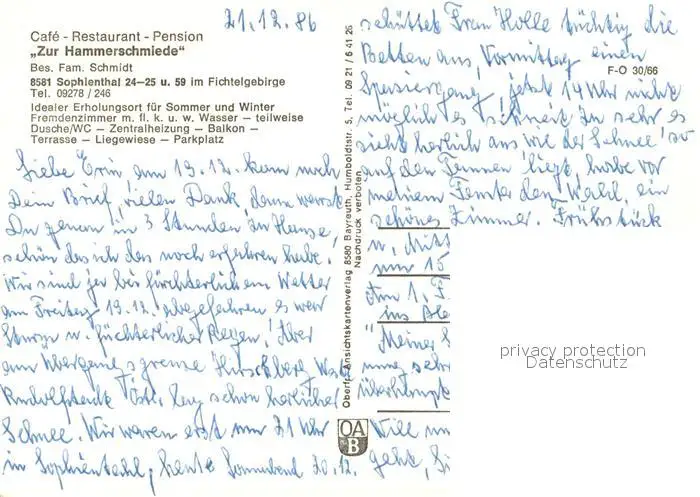 21.12.86
Café - Restaurant - Pension
„Zur Hammerschmiede“
Bes. Fam. Schmidt
8581 Sophienthal 24—25 u. 59 im Fichtelgebirge
Tel. 09278 / 246
Idealer Erholungsort für Sommer und Winter
Fremdenzimmer m. fl. k. u. w. Wasser — teilweise
Dusche/WC — Zentralheizung — Balkon —
Terrasse — Liegewiese — Parkplatz
Liebe Erin am 19.12. kam noch
Dein Brief, vielen Dank dann warst
Du genau in 3 Stunden zu Hause,
schön das ich das noch erfahren habe.
Wir sind ja bei fürchterlichem Wetter
am Freitag 19.12. abgefahren es war
Sturm u. fürchterlicher Regen. Aber
am Übergangsgrenze Hirschberg
Rudolfstein lag schon herrlicher
Schnee. Wir waren erst um 21 Uhr
in Sophienthal, heute Sonnabend 20.12.
Oberfr. Ansichtskartenverlag 8580 Bayreuth, Humboldtstr. 5, Tel. 09 21 / 6 41 26
Nachdruck verboten
OA
B
F-O 30/66
schüttet Frau Holle tüchtig die
Betten aus, Vormittag einen
Spaziergang, jetzt 14 Uhr nicht
möglich es schneit zu sehr es
sieht herrlich aus wie der Schnee so
auf den Tannen liegt, habe vor
meinem Fenster den Wald, ein
schönes Zimmer. Frühstück
u. Mitt
um 15
Am 1. F
ins
Meiner
ung sehr
überhaupt
Will
geht,
privacy protection
Datenschutz